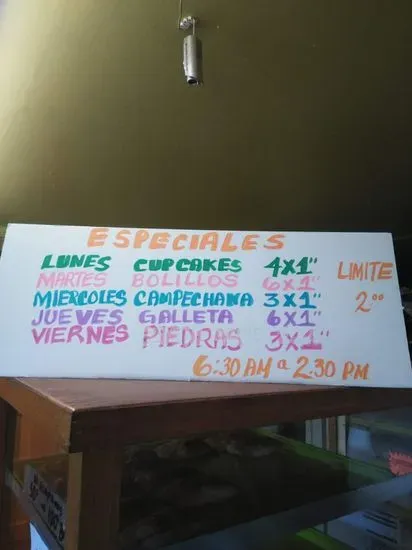 ESPECIALES
LUNES CUPCAKES 4X1"
MARTES BOLILLOS 6X1"
MIERCOLES CAMPECHANA 3X1"
JUEVES GALLETA 6X1"
VIERNES PIEDRAS 3X1"
LIMITE
2.00
6:30 AM a 2:30 PM